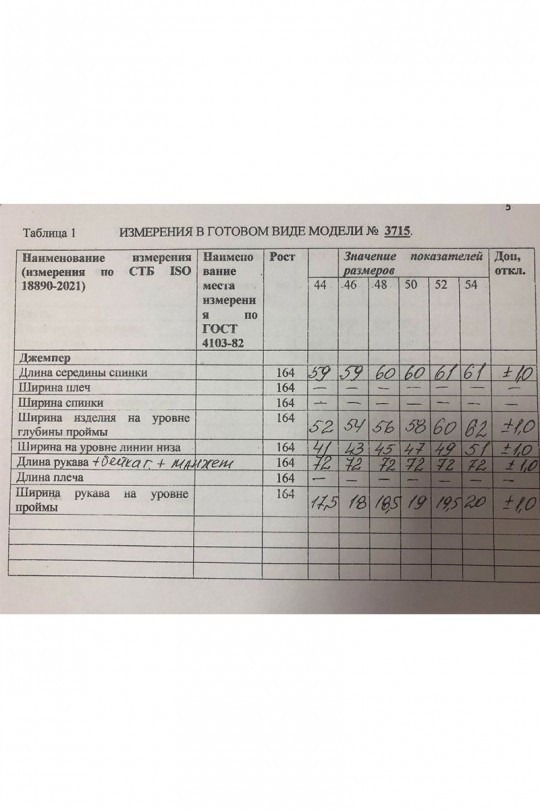 5
Таблица 1 ИЗМЕРЕНИЯ В ГОТОВОМ ВИДЕ МОДЕЛИ № 3715.
Наименование измерения (измерения по СТБ ISO 18890-2021) Наимено вание места измерени я по ГОСТ 4103-82 Рост Значение показателей размеров Доп, откл.
44 46 48 50 52 54
Джемпер
Длина середины спинки 164 59 59 60 60 61 61 ±1,0
Ширина плеч 164 — — — — — — —
Ширина спинки 164 — — — — — — —
Ширина изделия на уровне глубины проймы 164 52 54 56 58 60 62 ±1,0
Ширина на уровне линии низа 164 41 43 45 47 49 51 ±1,0
Длина рукава + манжет 164 72 72 72 72 72 72 ±1,0
Длина плеча 164 — — — — — — —
Ширина рукава на уровне проймы 164 17,5 18 18,5 19 19,5 20 ±1,0